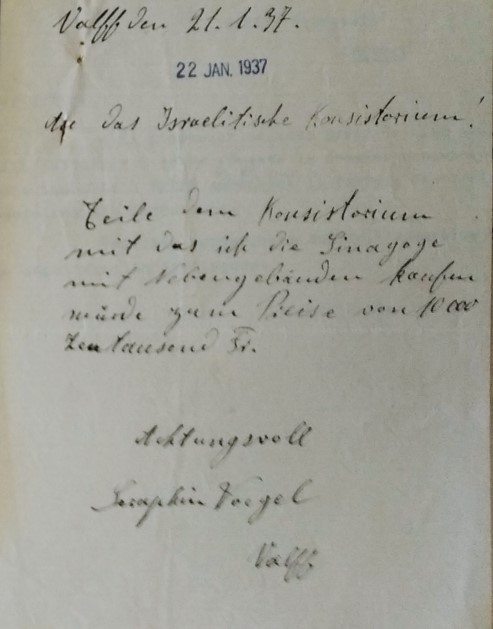 Valff den 21.1.37.
22 JAN. 1937
An das Israelitische Konsistorium!
Teile dem Konsistorium
mit das ich die Sinagoge
mit Nebengebänden kaufen
würde zum Preise von 10 000
Zentausend Fr.
Achtungsvoll
Seraphin Voegel
Valff